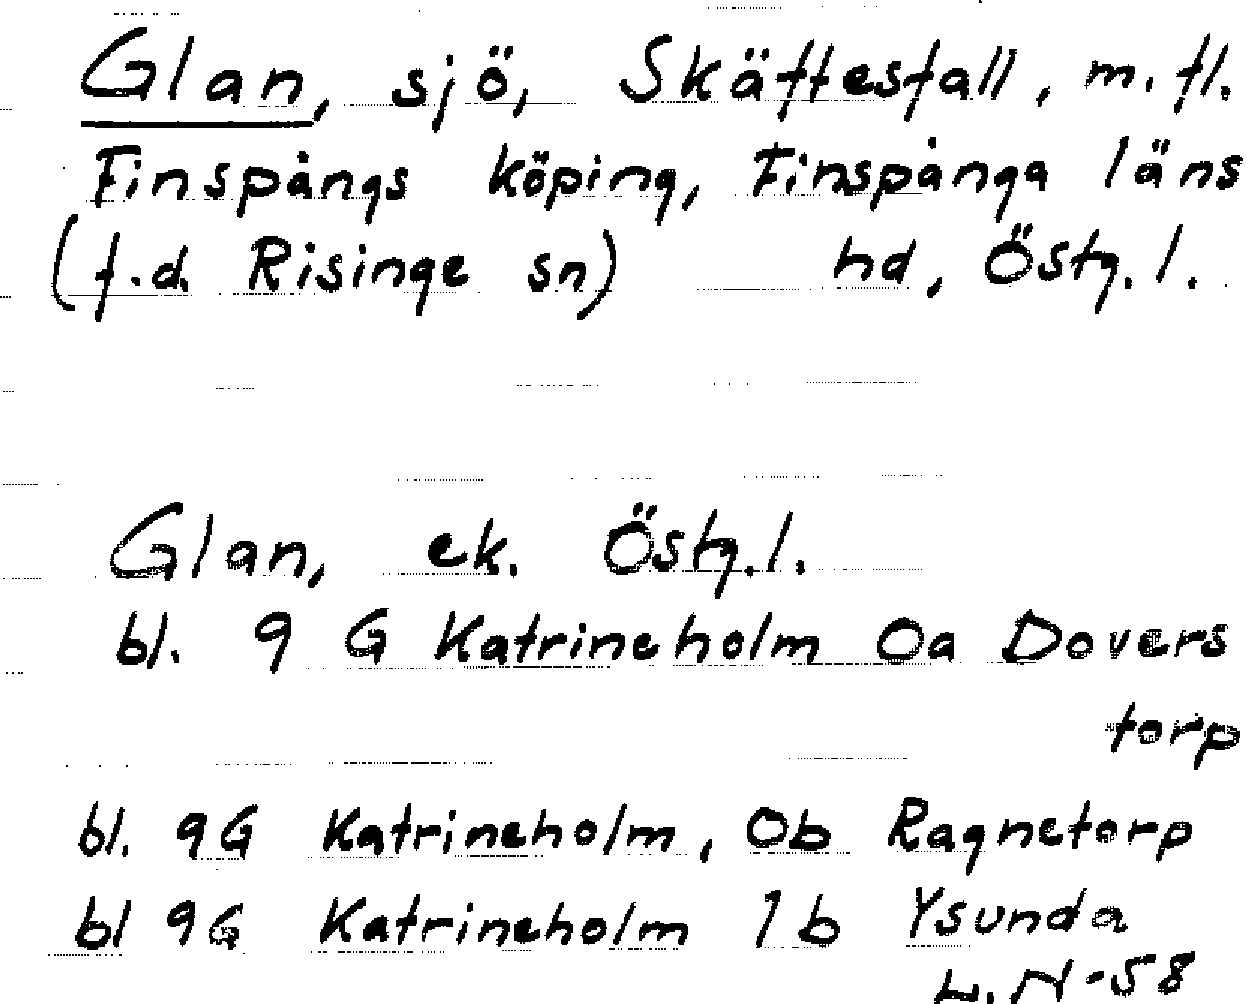 Glan, sjö, Skäftesfall, m. fl.
Finspångs köping, Finspånga läns
(f.d. Risinge sn) hd, Östg. l.
Glan, ek. Östg. l.
bl. 9 G Katrineholm 0a Dovers
torp
bl. 9G Katrineholm, 0b Ragnetorp
bl 9G Katrineholm 1b Ysunda
L. N-58